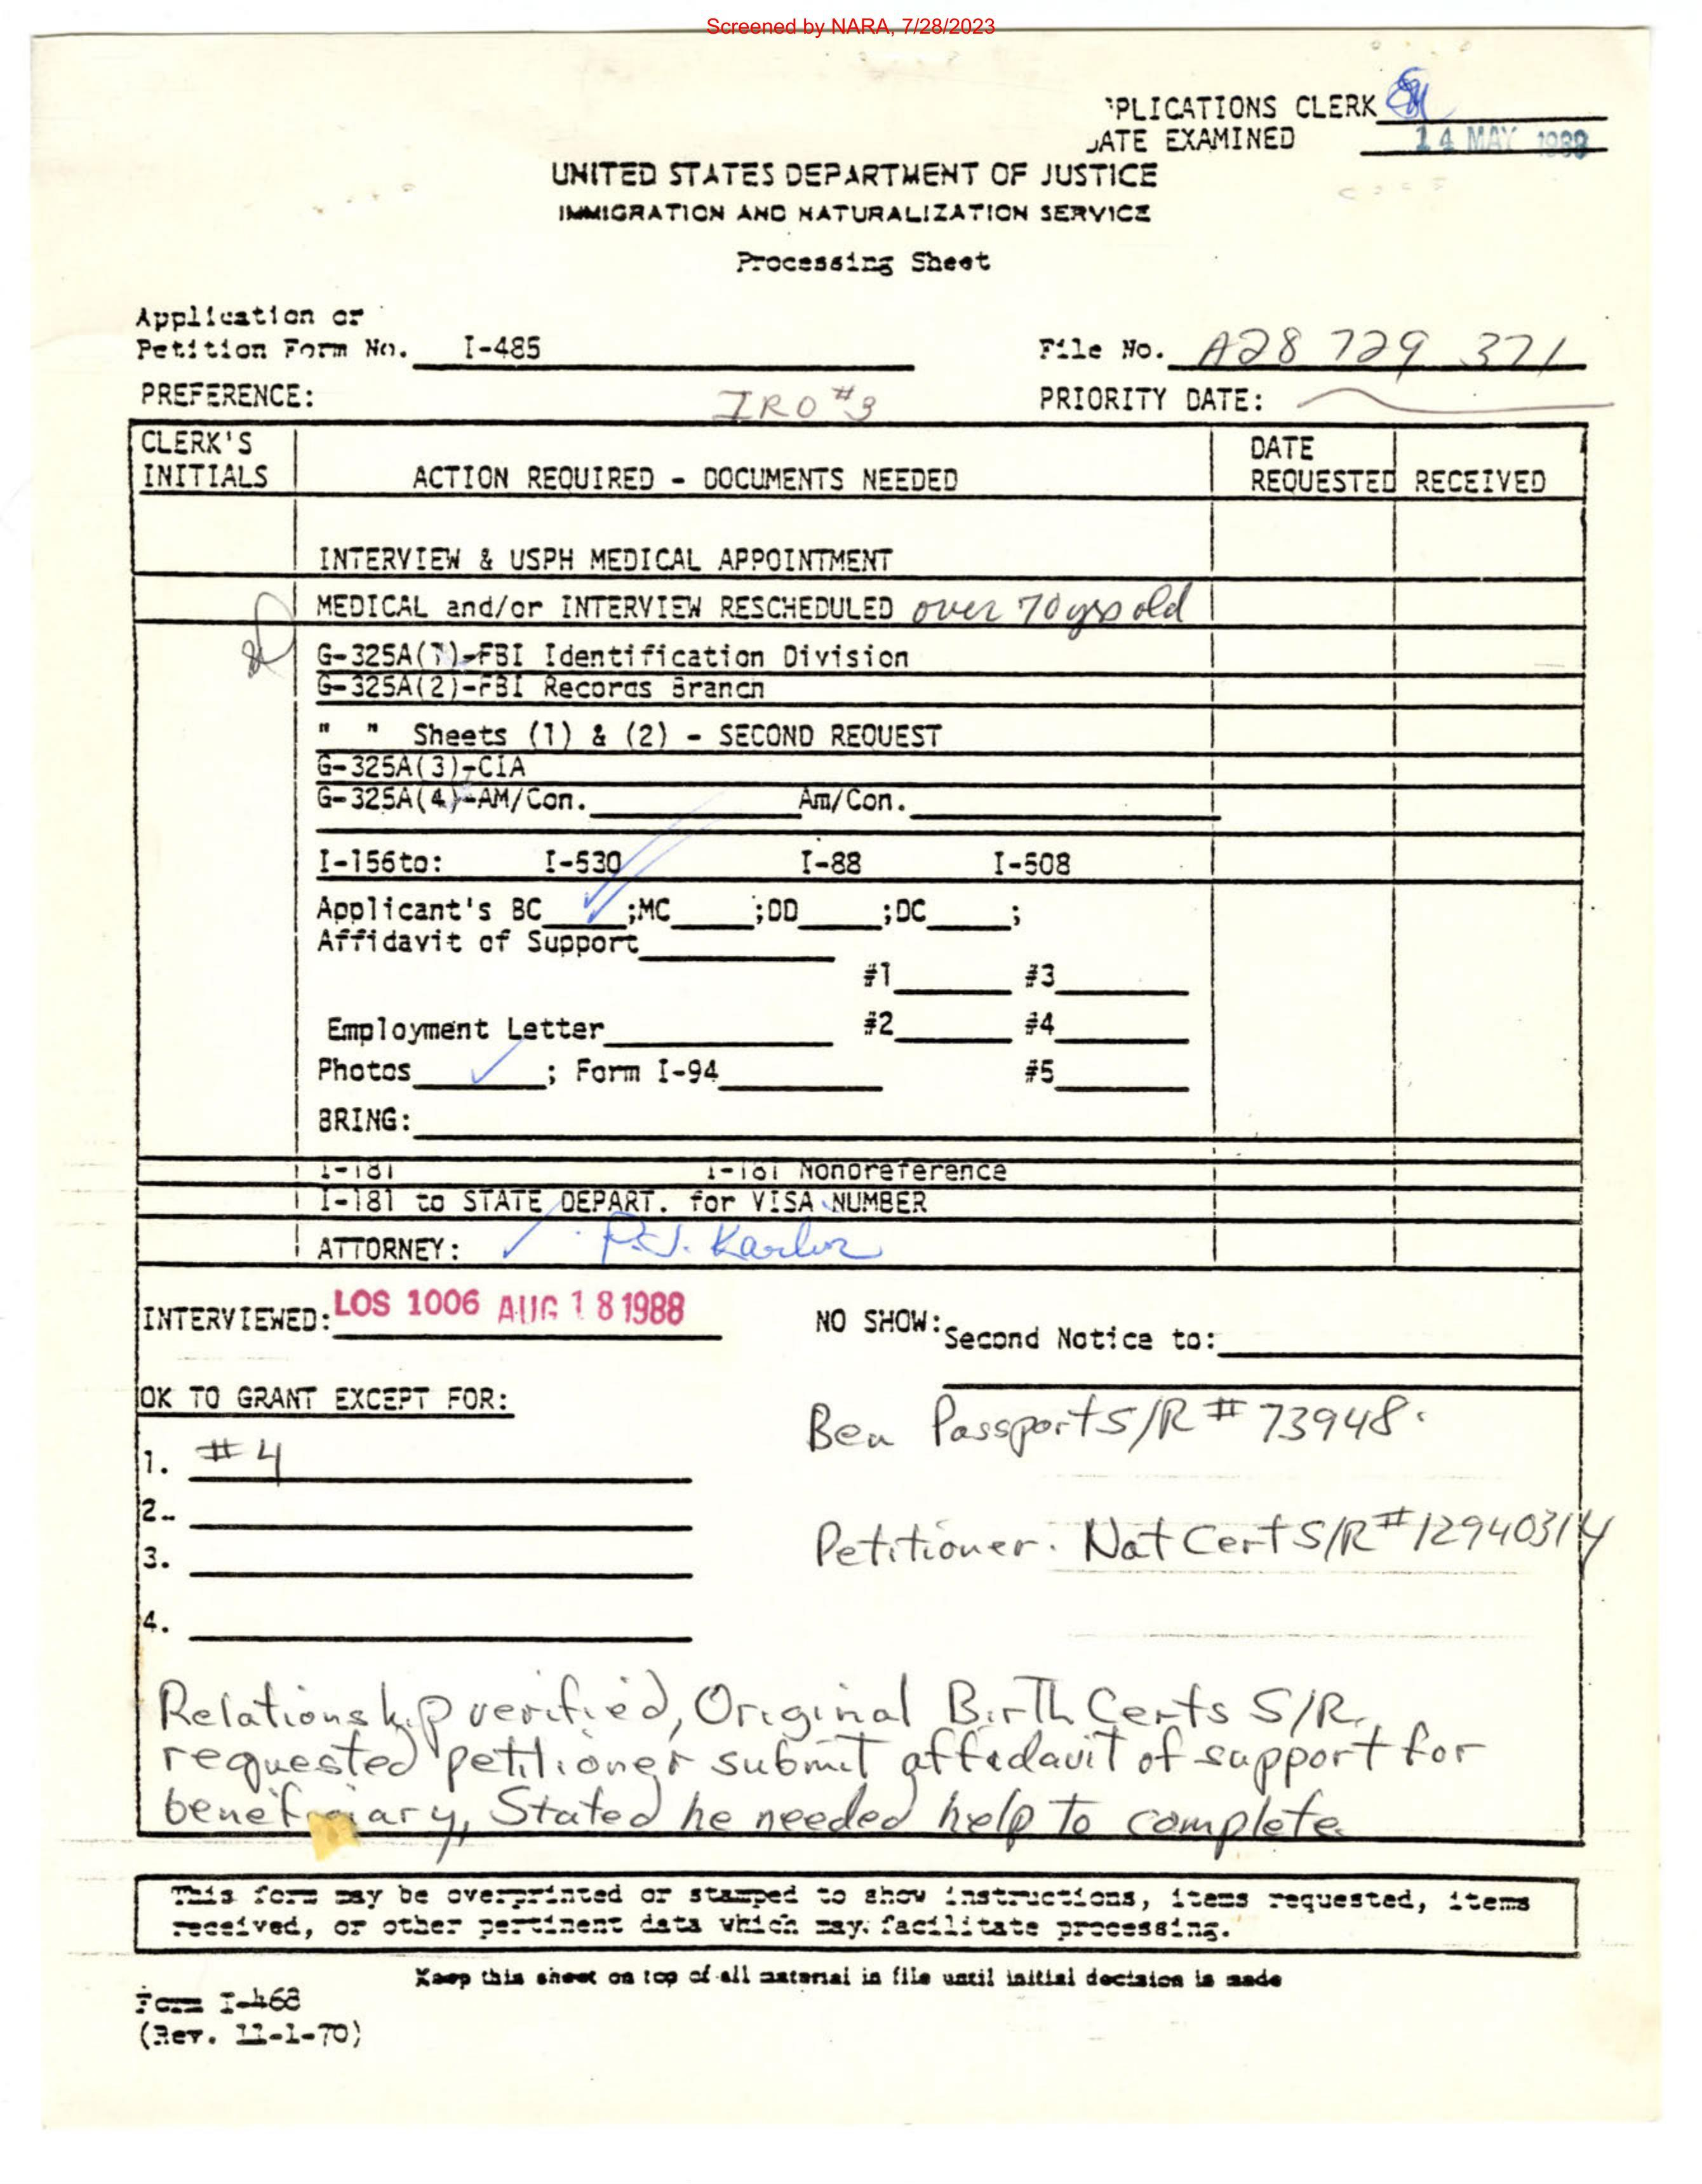 Screened by NARA, 7/28/2023
PLICATIONS CLERK
ATE EXAMINED 14 MAY 1988
UNITED STATES DEPARTMENT OF JUSTICE
IMMIGRATION AND NATURALIZATION SERVICE
Processing Sheet
Application or
Petition Form No. I-485 File No. A28 729 371
PREFERENCE: IRO #3 PRIORITY DATE:
CLERK'S INITIALS ACTION REQUIRED - DOCUMENTS NEEDED DATE REQUESTED RECEIVED
INTERVIEW & USPH MEDICAL APPOINTMENT
MEDICAL and/or INTERVIEW RESCHEDULED over 70 yrs old
G-325A(1)-FBI Identification Division
G-325A(2)-FBI Records Branch
" " Sheets (1) & (2) - SECOND REQUEST
G-325A(3)-CIA
G-325A(4)-AM/Con. Am/Con.
I-156to: I-530 I-88 I-508
Applicant's BC ;MC ;DD ;DC ;
Affidavit of Support
#1 #3
Employment Letter #2 #4
Photos ; Form I-94 #5
BRING:
I-181 I-181 Nonpreference
I-181 to STATE DEPART. for VISA NUMBER
ATTORNEY: P.J. Karlin
INTERVIEWED: LOS 1006 AUG 18 1988 NO SHOW: Second Notice to:
OK TO GRANT EXCEPT FOR:
Ben Passport S/R # 73948.
1. #4
2.
Petitioner. Nat Cert S/R #12940314
3.
4.
Relationship verified, Original Birth Certs S/R,
requested petitioner submit affadavit of support for
beneficiary, Stated he needed help to complete.
This form may be overprinted or stamped to show instructions, items requested, items
received, or other pertinent data which may facilitate processing.
Keep this sheet on top of all material in file until initial decision is made
Form I-468
(Rev. 11-1-70)